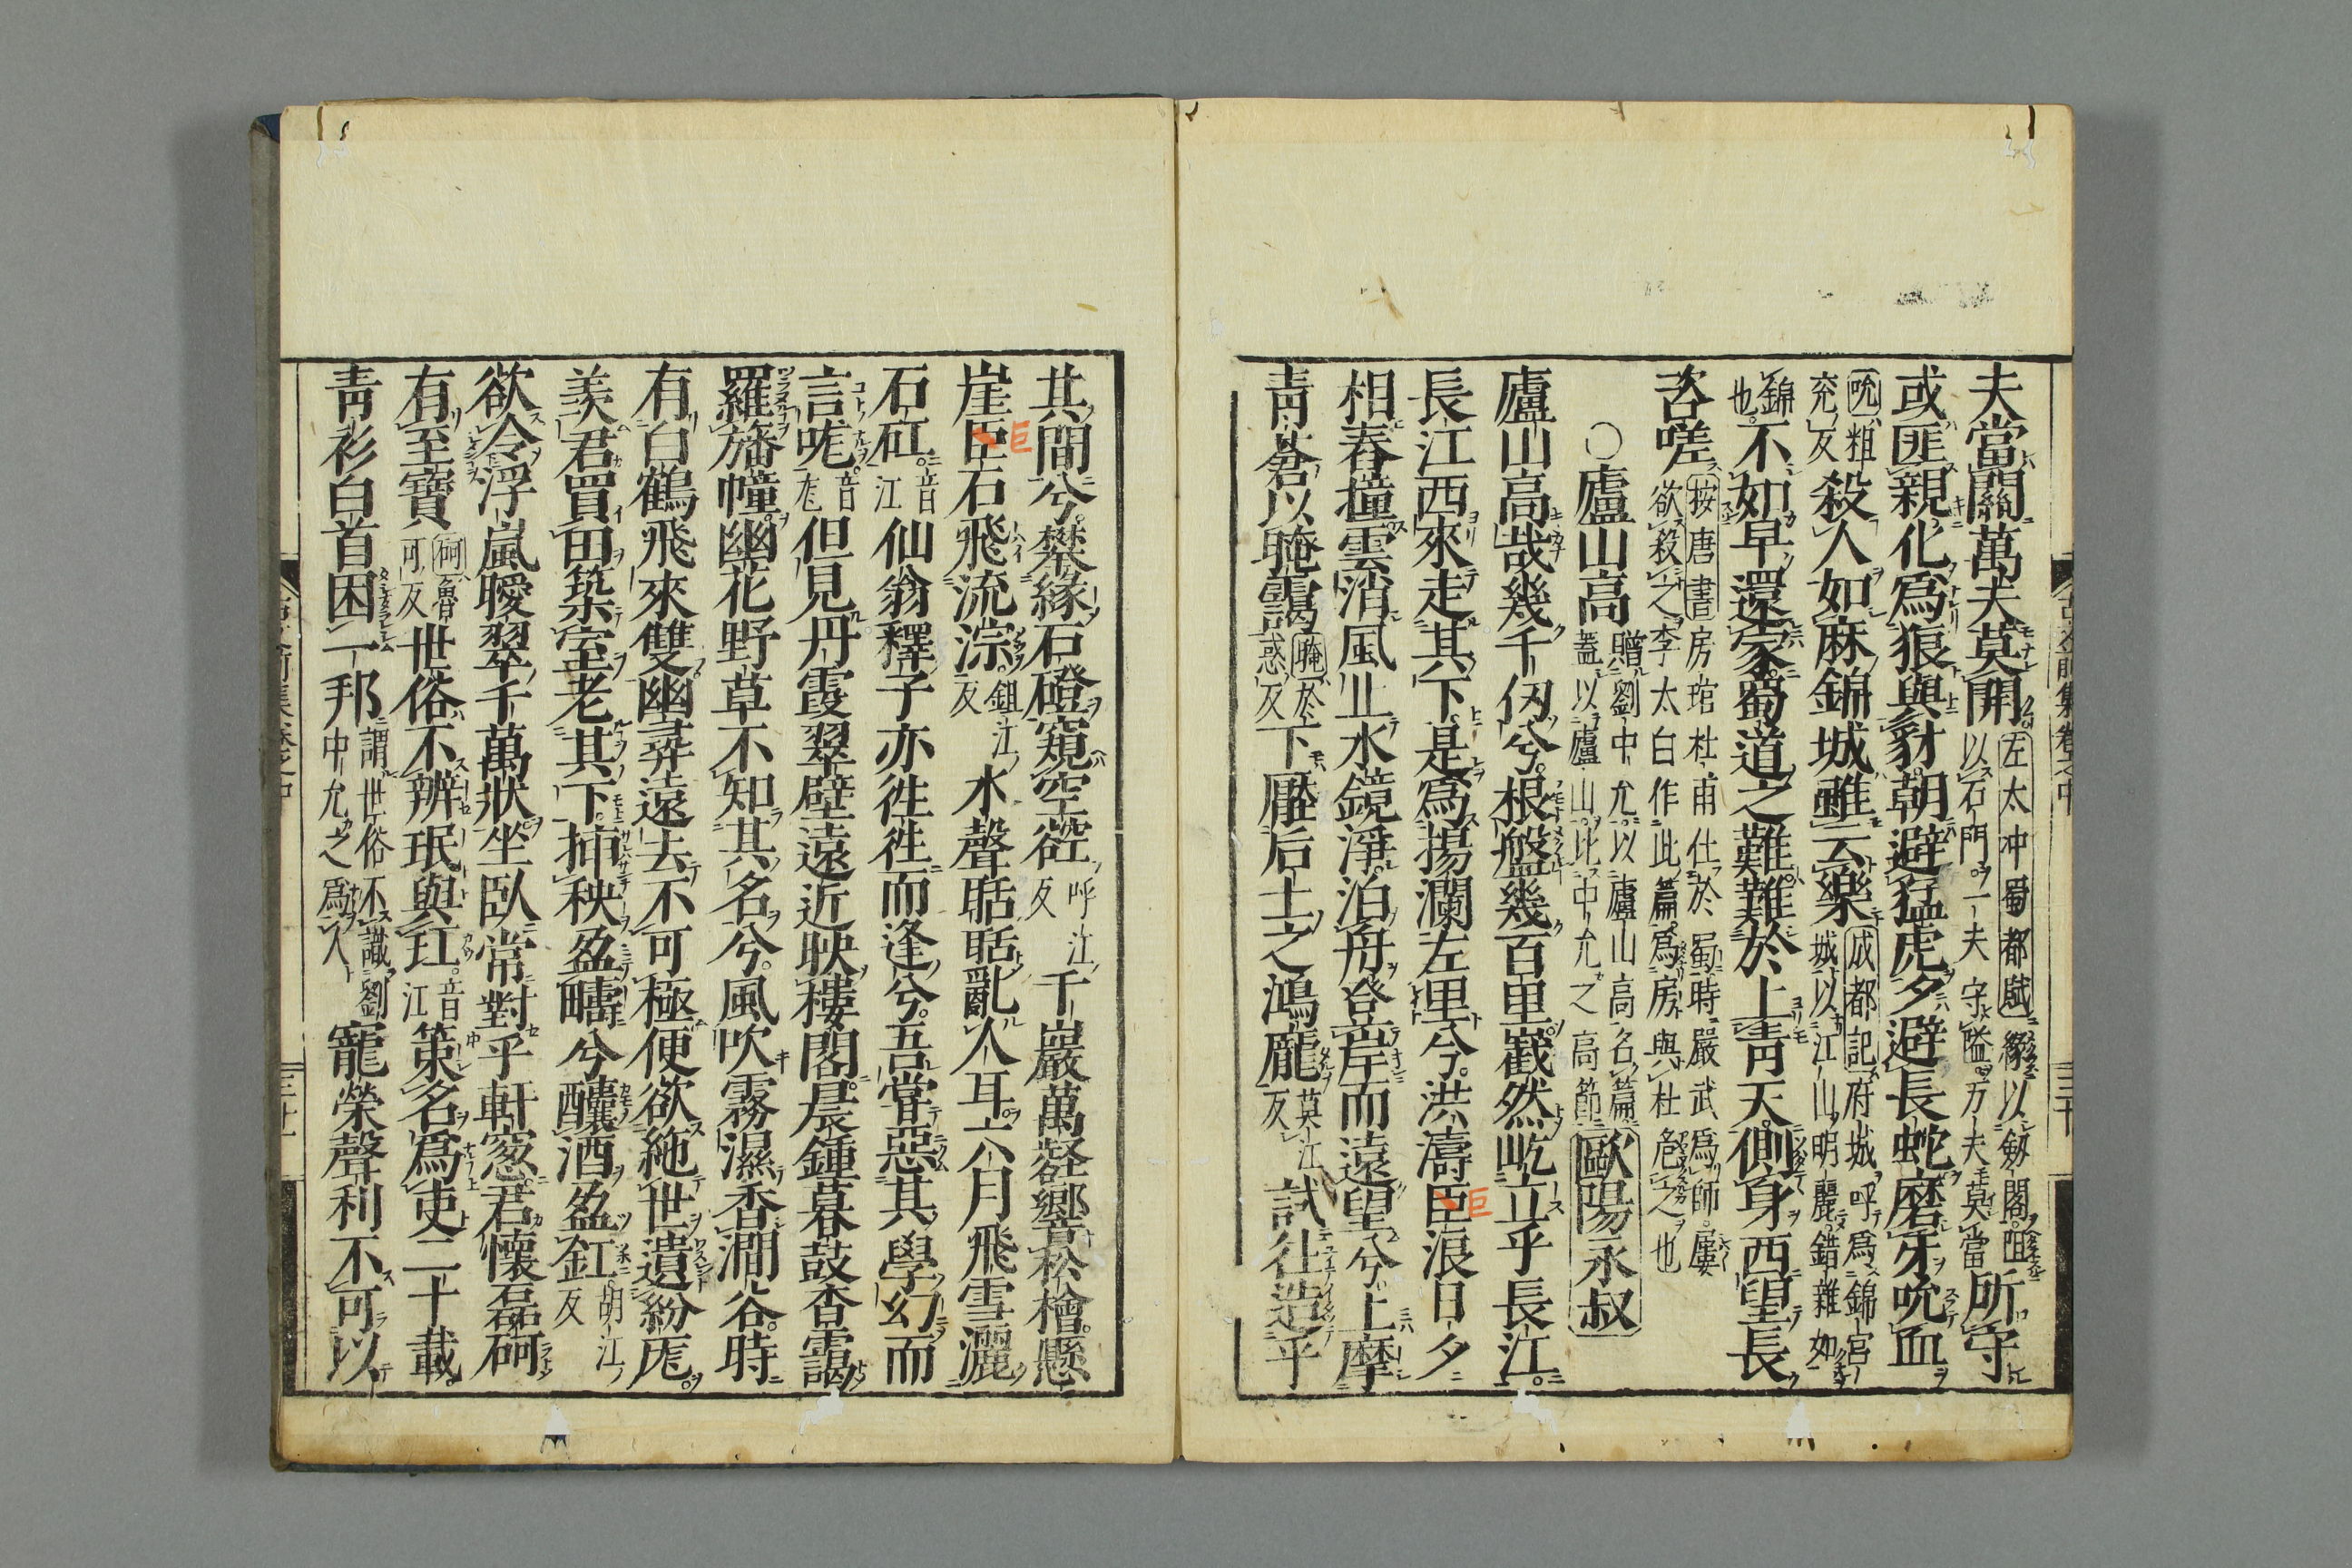 夫當關萬夫莫開左太冲蜀都賦緣以劔閣阻以石門一夫守隘万夫莫當所守
或匪親化爲狼與豺朝避猛虎夕避長蛇磨牙吮血
吮粗兖反殺人如麻錦城雖云樂成都記府城呼爲錦宮城以江山明麗錯雜如
錦也不如早還家蜀道之難難於上青天側身西望長
咨嗟按唐書房琯杜甫仕於蜀時嚴武爲師屢欲殺之李太白作此篇爲房與杜危之也
〇廬山高贈劉中允以廬山高名篇蓋以廬山比中允之高節歐陽永叔
廬山高哉幾千仭兮根盤幾百里巀然屹立乎長江
長江西來走其下是爲揚瀾左里兮洪濤臣巨浪日夕
相舂撞雲消風止水鏡淨泊舟登岸而遠望兮上摩
青蒼以晻靄晻於惑反下壓后土之鴻厖莫江反試往造乎
古文前集卷之中 三十
其間兮攀緣石磴窺空谾呼江反千巖萬壑響松檜懸
崖臣巨石飛流淙鉏江反水聲聒聒亂人耳六月飛雪灑
石矼音江仙翁釋子亦徃徃而逢兮吾甞惡其學幻而
言哤音厖但見丹霞翠壁遠近映樓閣晨鍾暮鼓杳靄
羅旛幢幽花野草不知其名兮風吹霧濕香澗谷時
有白鶴飛來雙幽尋遠去不可極便欲絁世遺紛厖
羡君買田築室老其下插秧盈疇兮釀酒盈缸胡江反
欲令浮嵐曖翠千萬狀坐臥常對乎軒窓君懷磊砢
有至寶砢魯可反世俗不辨珉與玒音江策名爲吏二十載
青衫白首困一邦謂世俗不識劉中允之爲人寵榮聲利不可以